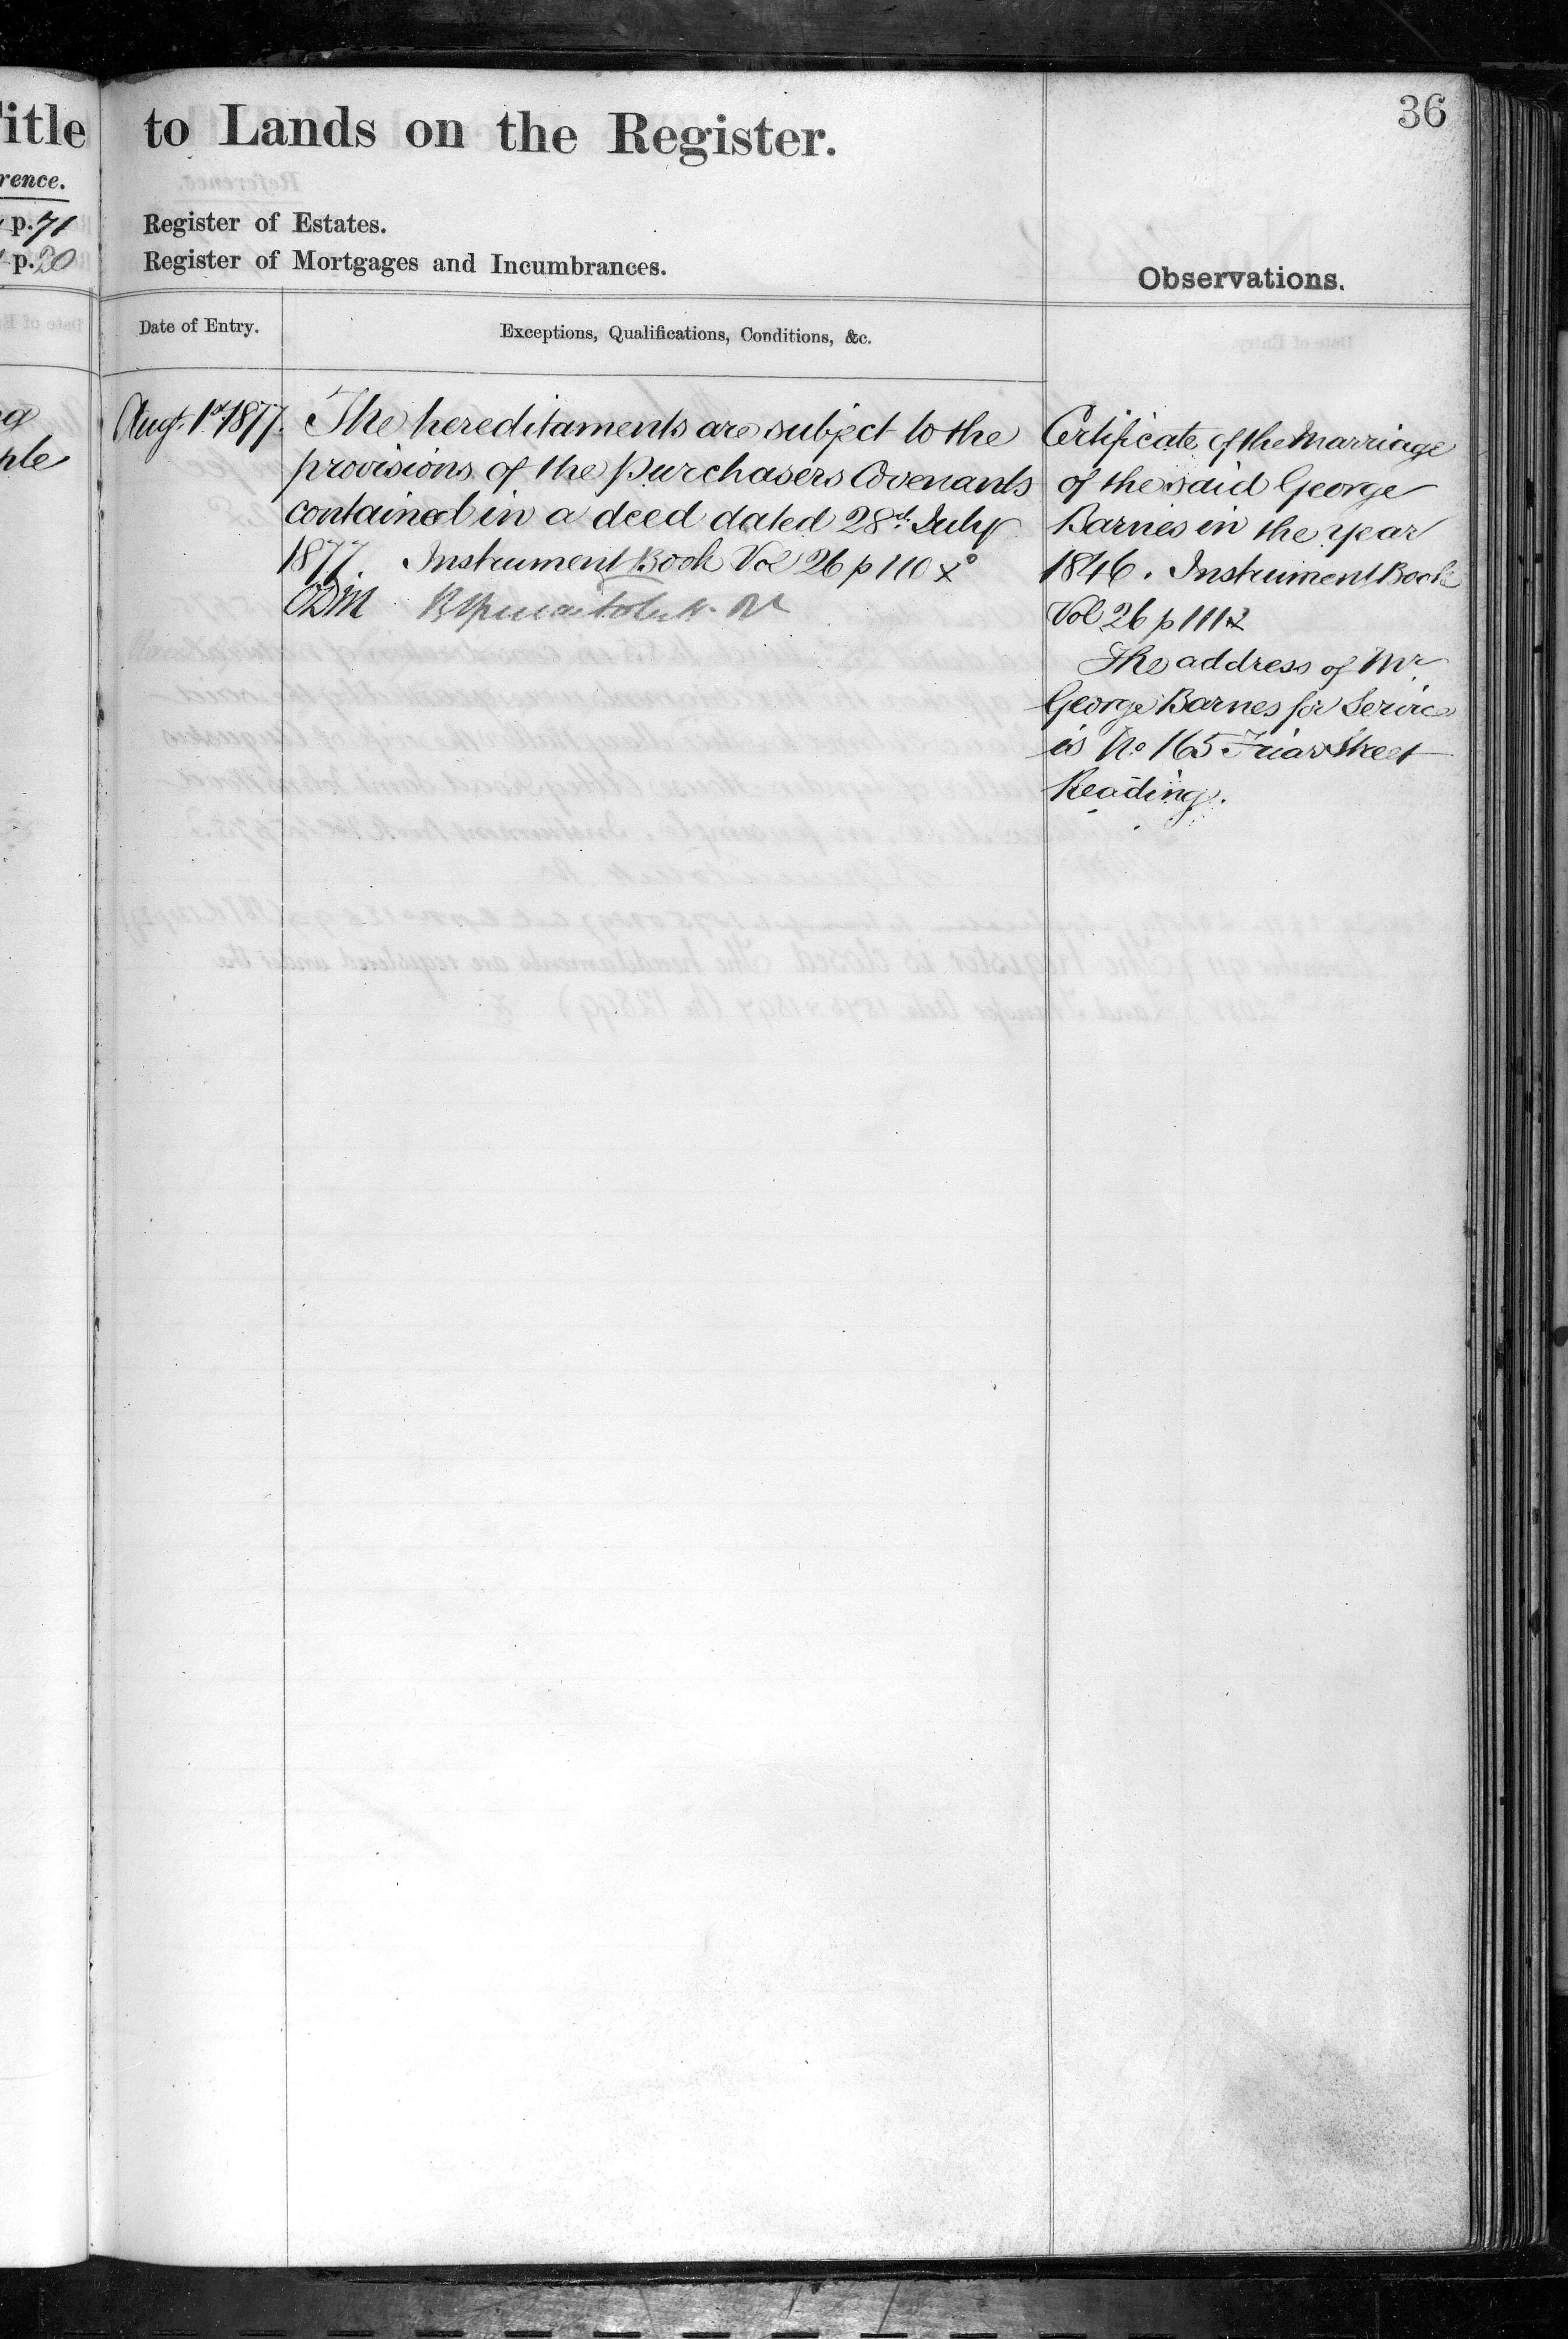 36
Title to Lands on the Register.
rence.
p. 71 Register of Estates.
p. 20 Register of Mortgages and Incumbrances.
Observations.
Date of Entry. Exceptions, Qualifications, Conditions, &c.
Augt. 1st 1877. The hereditaments are subject to the
provisions of the Purchasers Covenants
contained in a deed dated 28th July
1877. Instrument Book Vol 26 p 110
Certificate of the Marriage
of the said George
Barnes in the year
1846. Instrument Book
Vol 26 p 111
The address of Mr
George Barnes for Service
is No 165 Friar Street
Reading.